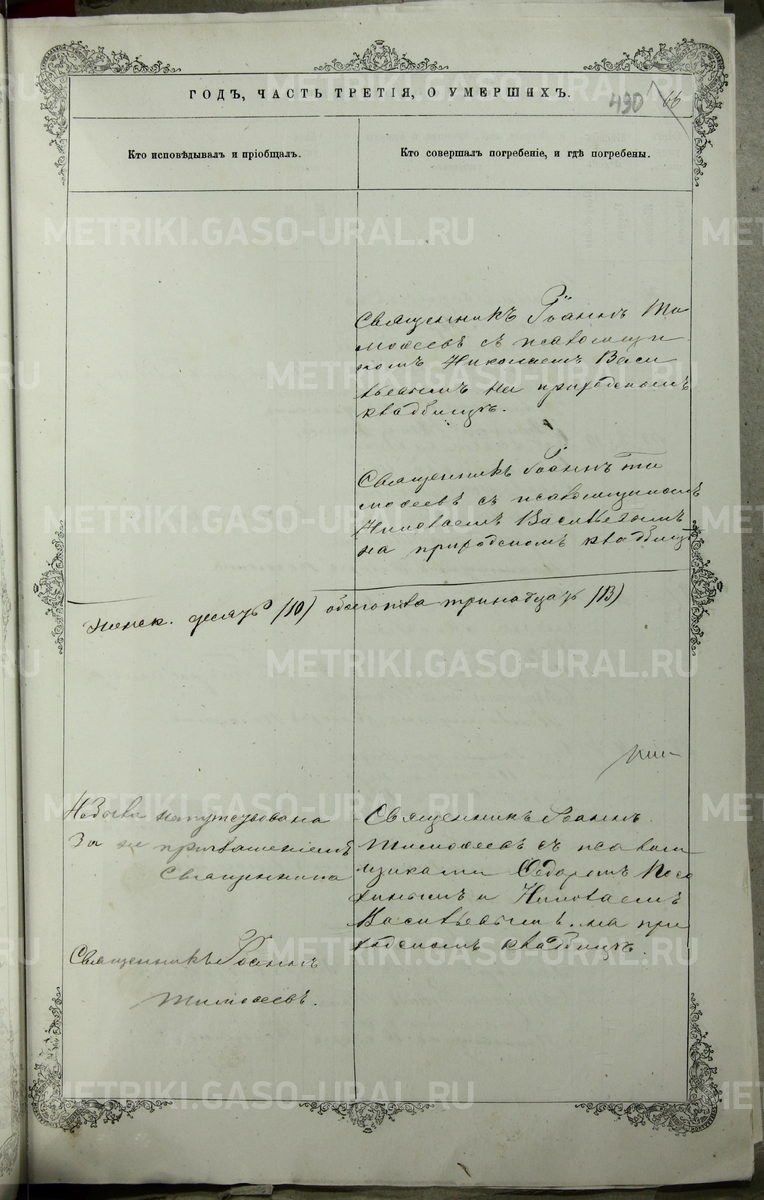 ГОДЪ, ЧАСТЬ ТРЕТІЯ, О УМЕРШИХЪ.
430 66
Кто исповѣдывалъ и пріобщалъ.
Кто совершалъ погребеніе, и гдѣ погребены.
Священникъ Іоаннъ Ти
мофеевъ съ псаломщи
комъ Николаемъ Васи
льевымъ на приходскомъ
кладбищѣ.
Священникъ Іоаннъ Ти
мофеевъ съ псаломщикомъ
Николаемъ Васильевымъ
на приходскомъ кладбищѣ
женск. десять (10) обоего пола тринадцать (13)
Не была напутствована
За не приглашеніемъ
Священника
Священникъ Іоаннъ
Тимофеевъ.
Священникъ Іоаннъ
Тимофеевъ съ псалом
щиками Федоромъ
и Николаемъ
Васильевымъ на при
ходскомъ кладбищѣ.
METRIKI.GASO-URAL.RU